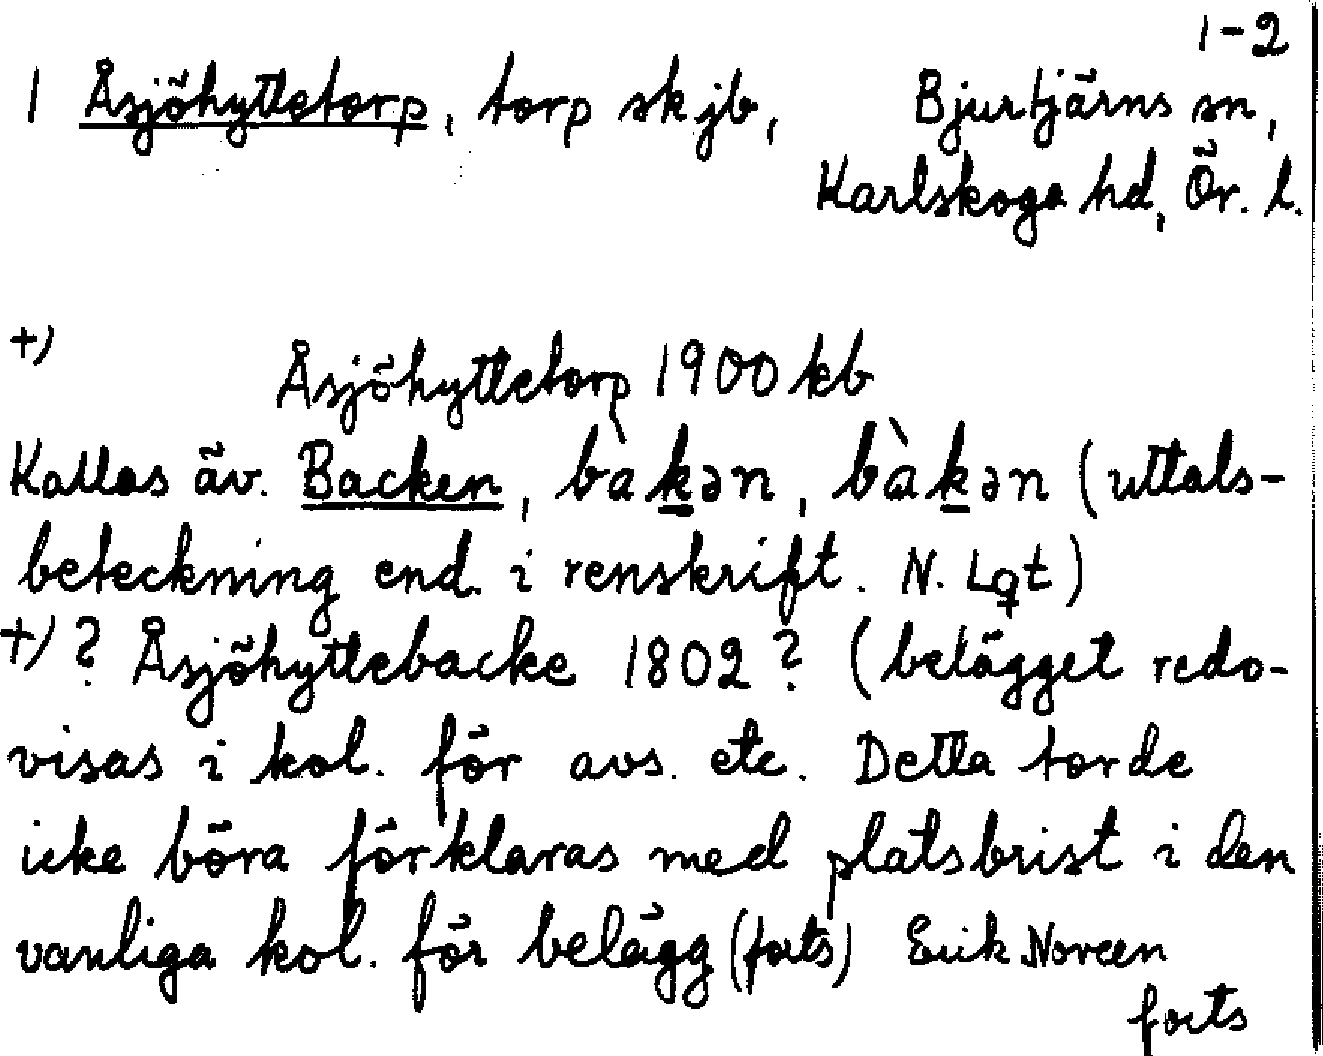 1-2
1 Åsjöhyttetorp, torp sk jb, Bjurtjärns sn,
Karlskoga hd, Ör. l.
+) Åsjöhyttetorp 1900 kb
Kallas äv. Backen, bàkən, bàkən (uttals-
beteckning end. i renskrift. N. Lgt)
+)? Åsjöhyttebacke 1802? (belägget redo-
visas i kol. för avs. etc. Detta torde
icke böra förklaras med platsbrist i den
vanliga kol. för belägg (forts) Erik Noreen
forts